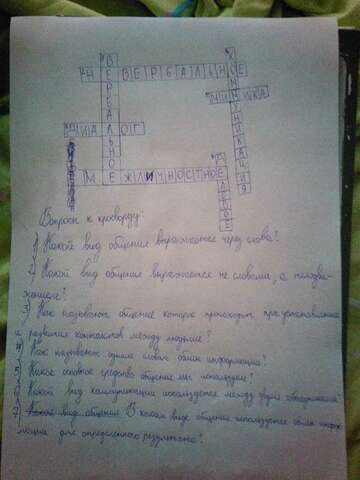 НЕВЕРБАЛЬНОЕ
ВЕРБАЛЬНОЕ
КОММУНИКАЦИЯ
МИМИКА
ДИАЛОГ
МЕЖЛИЧНОСТНОЕ
ДЕЛОВОЕ
Вопросы к кроворду:
1) Какой вид общения выражается через слова?
2) Какой вид общения выражается не словами, а телодви-
жением?
3) Как называют общение которое происходит при установлении
и развитии контактов между людьми?
4) Как называют одним словом обмен информации?
5 Какое основное средство общения мы используем?
6 Какой вид коммуникации используется между двумя собеседниками?
7 вид общения В каком виде общения используется обмен инфор-
мации для определенного результата?